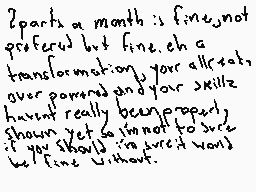 2 parts a month is fine, not
prefered but fine. eh a
transformation, your allready
over powered and your skillz
havent really been properly
shown yet so im not to sure
if you should. i'm sure it would
be fine without.